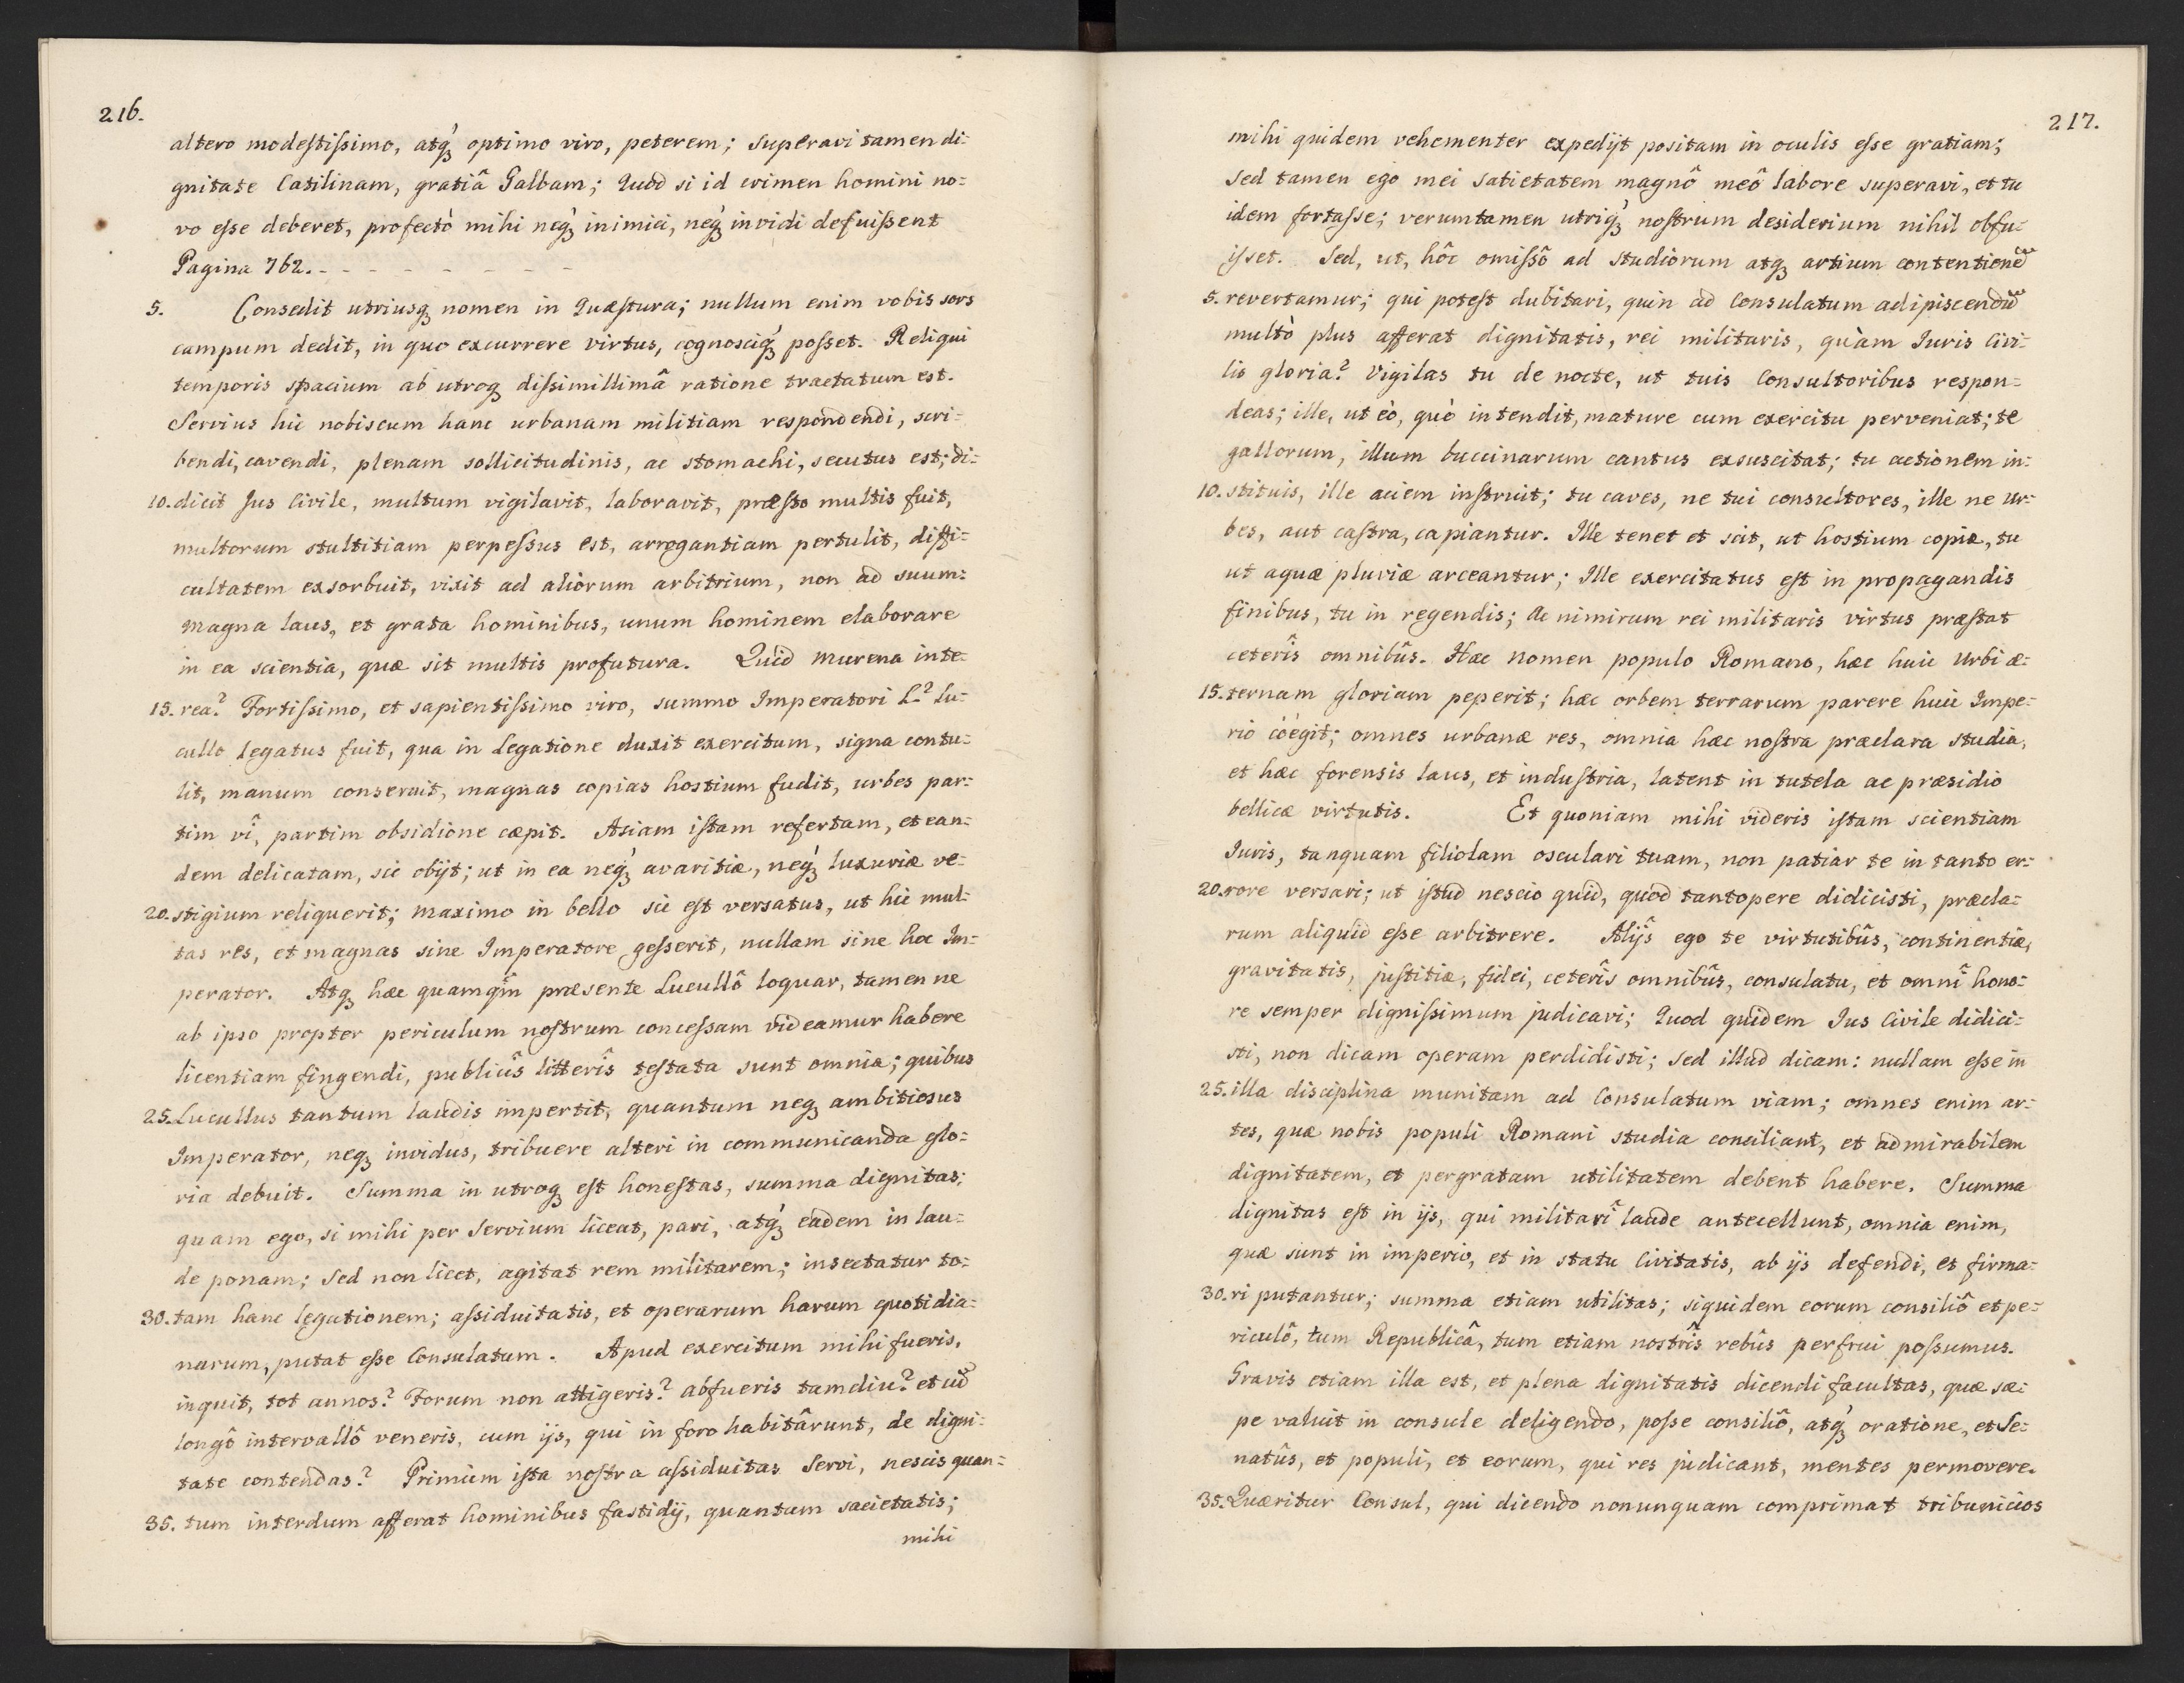 216.
altero modestissimo, atq́ optimo viro, peterem; superavi tamen di=
gnitate Catilinam, gratiâ Galbam; Quod si id crimen homini no=
vo esse deberet, profectò mihi neq́ inimici, neq́ invidi defuissent
Pagina 762. - - - - - - - -
5. Consedit utriusq nomen in Quæstura; nullum enim vobis sors
campum dedit, in quo excurrere virtus, cognosciq́ posset. Reliqui
temporis spacium ab utroq dissimillimâ ratione tractatum est.
Servius hic nobiscum hanc urbanam militiam respondendi, scri=
bendi, cavendi, plenam sollicitudinis, ac stomachi, secutus est; di=
10. dicit Jus Civile, multum vigilavit, laboravit, præsto multis fuit,
multorum stultitiam perpessus est, arrogantiam pertulit, diffi=
cultatem exsorbuit, vixit ad aliorum arbitrium, non ad suum=
magna laus, et grata hominibus, unum hominem elaborare
in ea scientia, quæ sit multis profutura. Quid Murena inte=
15. rea? Fortissimo, et sapientissimo viro, summo Imperatori L.? Lu=
cullo legatus fuit, qua in Legatione duxit exercitum, signa contu=
lit, manum conseruit, magnas copias hostium fudit, urbes par=
tim vî, partim obsidione cæpit. Asiam istam refertam, et ean=
dem delicatam, sic obijt; ut in ea neq́ avaritiæ, neq́ luxuriæ ve=
20. stigium reliquerit; maximo in bello sic est versatus, ut hic mul=
tas res, et magnas sine Imperatore gesserit, nullam sine hoc Im=
perator. Atq hæc quamq̂m præsente Lucullô loquar, tamen ne
ab ipso propter periculum nostrum concessam videamur habere
licentiam fingendi, publicîs litterîs testata sunt omnia; quibus
25. Lucullus tantum laudis impertit, quantum neq ambitiosus
Imperator, neq invidus, tribuere alteri in communicanda glo=
ria debuit. Summa in utroq est honestas, summa dignitas;
quam ego, si mihi per Servium liceat, pari, atq́ eadem in lau=
de ponam; Sed non licet, agitat rem militarem; insectatur to=
30. tam hanc legationem; assiduitatis, et operarum harum quotidia=
narum, putat esse Consulatum. Apud exercitum mihi fueris,
inquit, tot annos? Forum non attigeris? abfueris tamdiu? et ud̃
longô intervallô veneris, cum ijs, qui in foro habitârunt, de digni=
tate contendas? Primùm ista nostra assiduitas Servi, nescis quan=
35. tum interdum afferat hominibus fastidij, quantum sacietatis;
mihi
217.
mihi quidem vehementer expedijt positam in oculis esse gratiam;
sed tamen ego mei satietatem magnô meô labore superavi, et tu
idem fortasse; verumtamen utriq́ nostrum desiderium nihil obfu=
isset. Sed, ut, hôc omissô ad studiorum atq artium contentionẽ
5. revertamur; qui potest dubitari, quin ad Consulatum adipiscendũ
multò plus afferat dignitatis, rei militaris, quàm Juris Civi=
lis gloria? Vigilas tu de nocte, ut tuis Consultoribus respon=
deas; ille, ut eò, quò intendit, mature cum exercitu perveniat; te
gallorum, illum buccinarum cantus exsuscitat; tu actionem in=
10. stituis, ille aciem instruit; tu caves, ne tui consultores, ille ne Ur=
bes, aut castra, capiantur. Ille tenet et scit, ut hostium copiæ, tu
ut aquæ pluviæ arceantur; Ille exercitatus est in propagandis
finibus, tu in regendis; Ac nimirum rei militaris virtus præstat
ceterîs omnibûs. Hæc nomen populo Romano, hæc huic Urbi æ=
15. ternam gloriam peperit; hæc orbem terrarum parere huic Impe=
rio cöegit; omnes urbanæ res, omnia hæc nostra præclara studia,
et hæc forensis laus, et industria, latent in tutela ac præsidio
bellicæ virtutis. Et quoniam mihi videris istam scientiam
Juris, tanquam filiolam osculari tuam, non patiar te in tanto er=
20. rore versari; ut istud nescio quid, quod tantopere didicisti, præcla=
rum aliquid esse arbitrere. Alijs ego te virtutibûs, continentiæ,
gravitatis, justitiæ, fidei, ceterîs omnibûs, consulatu, et omnî hono=
re semper dignissimum judicavi; Quod quidem Jus Civile didici=
sti, non dicam operam perdidisti; sed illud dicam: nullam esse in
25. illa disciplina munitam ad Consulatum viam; omnes enim ar=
tes, quæ nobis populi Romani studia conciliant, et admirabilem
dignitatem, et pergratam utilitatem debent habere. Summa
dignitas est in ijs, qui militarî laude antecellunt, omnia enim,
quæ sunt in imperio, et in statu Civitatis, ab ijs defendi, et firma=
30. ri putantur; summa etiam utilitas; siquidem eorum consiliô et pe=
riculô, tum Republicâ, tum etiam nostrîs rebûs perfrui possumus.
Gravis etiam illa est, et plena dignitatis dicendi facultas, quæ sæ=
pe valuit in consule deligendo, posse consiliô, atq́ oratione, et Se=
natûs, et populi, et eorum, qui res judicant, mentes permovere.
35. Quæritur Consul, qui dicendo nonunquam comprimat tribunicios